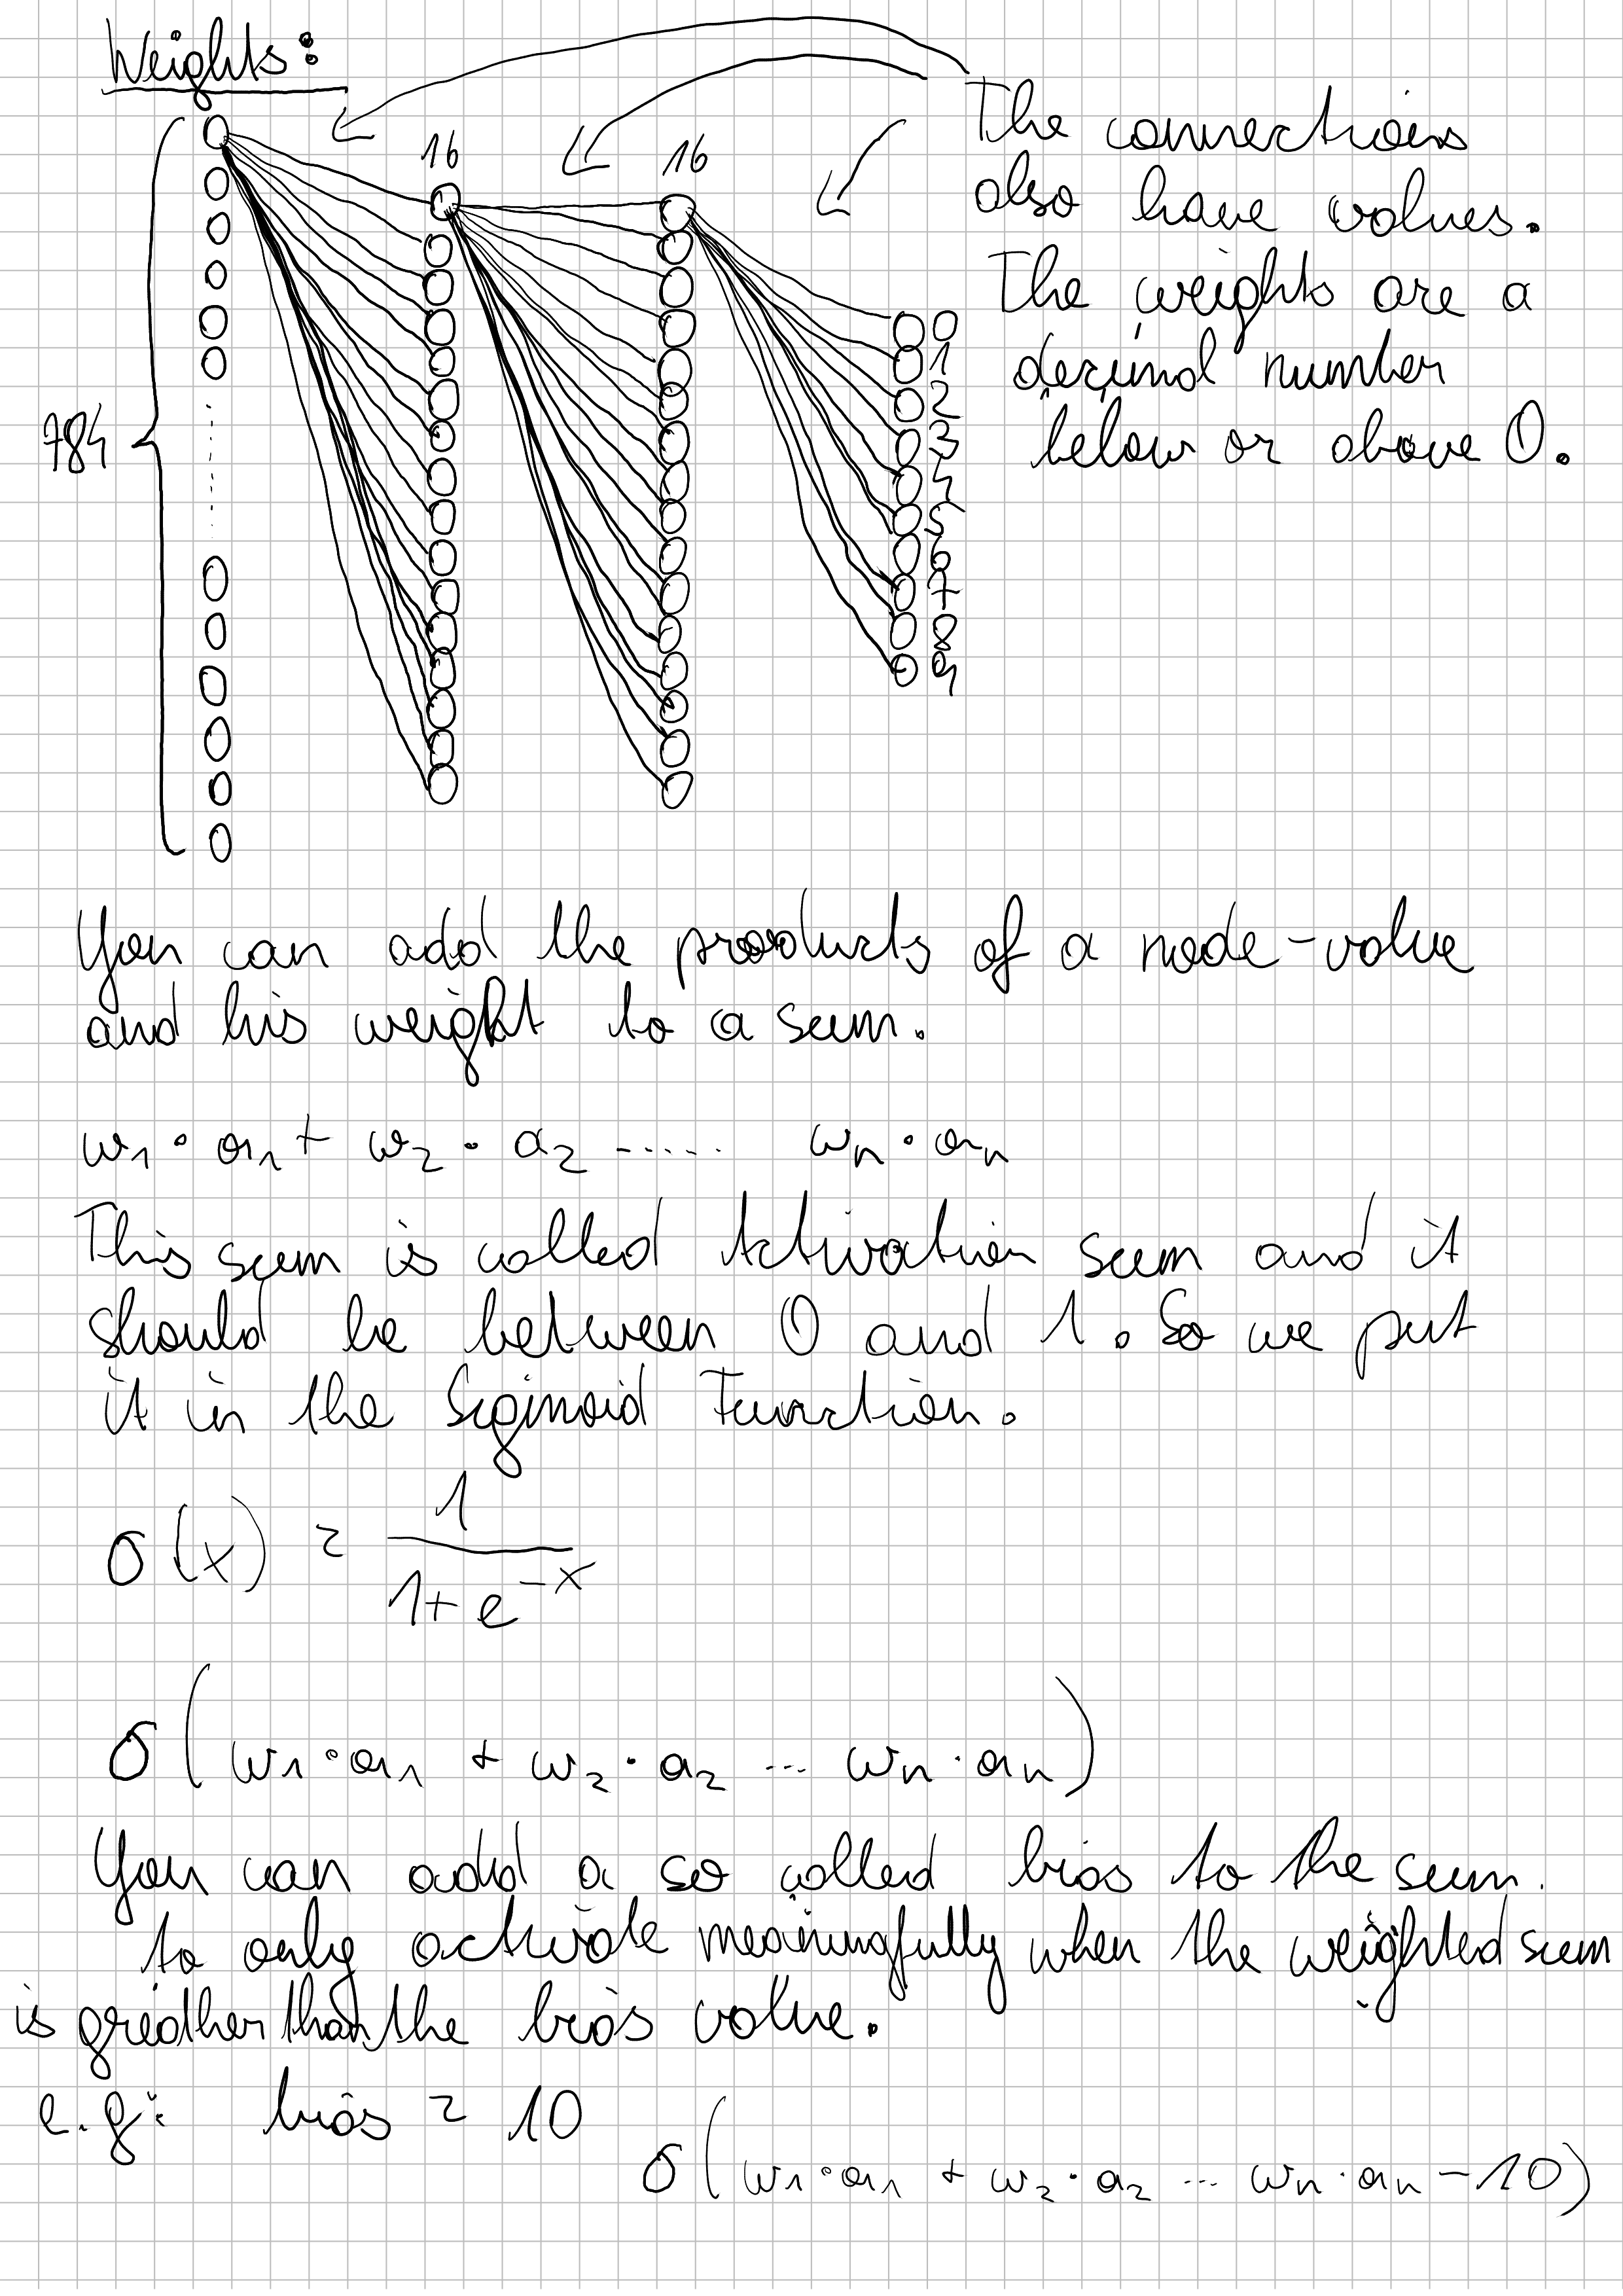 Weights:
The connections
also have values.
The weights are a
dezimal number
below or above 0.
16
16
784
0
1
2
3
4
5
6
7
8
9
You can add the products of a node-value
and his weight to a sum.
w₁ · a₁ + w₂ · a₂ ..... wₙ · aₙ
This sum is called Activation sum and it
should be between 0 and 1. So we put
it in the Sigmoid Function.
σ(x) = 1/(1+e^-x)
σ(w₁·a₁ + w₂·a₂ ... wₙ·aₙ)
You can add a so called bias to the sum.
to only activate meaningfully when the weighted sum
is greather than the bias value.
e.g: bias = 10
σ(w₁·a₁ + w₂·a₂ ... wₙ·aₙ - 10)